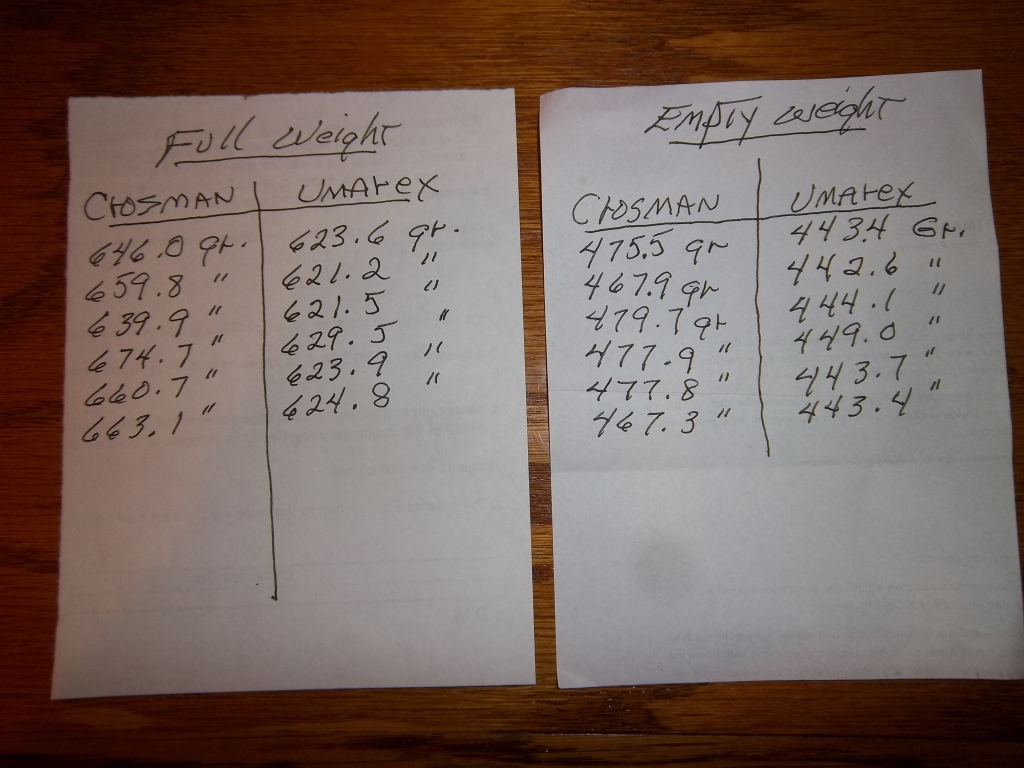 Full Weight
Crosman Umarex
646.0 gr. 623.6 gr.
659.8 " 621.2 "
639.9 " 621.5 "
674.7 " 629.5 "
660.7 " 623.9 "
663.1 " 624.8 "
Empty Weight
Crosman Umarex
475.5 gr 443.4 Gr.
467.9 gr 442.6 "
479.7 gr 444.1 "
477.9 " 449.0 "
477.8 " 443.7 "
467.3 " 443.4 "